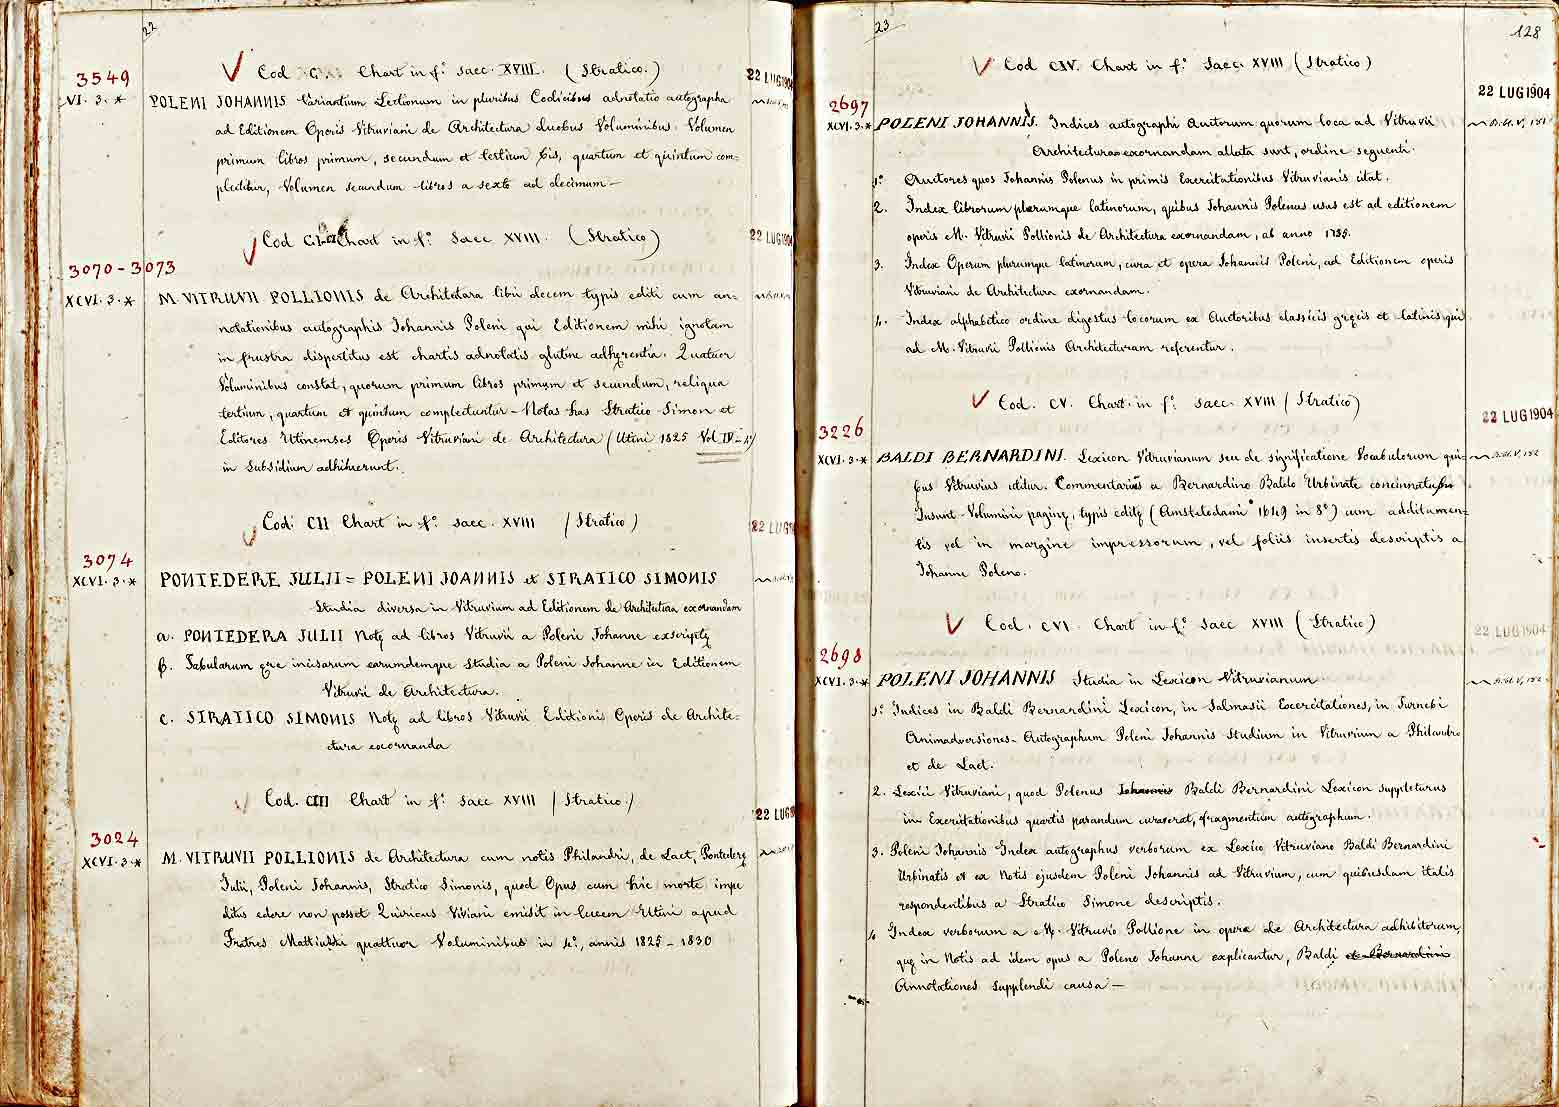 22
Cod C. Chart in fº. Saec. XVIII. (Stratico.)
22 LUG 1904
3549
VI. 3. *
POLENI JOHANNIS Variantium Lectionum in pluribus Codicibus adnotatio autographa
ad Editionem Operis Vitruviani de Architectura duobus Voluminibus. Volumen
primum libros primum, secundum et tertium bis, quartum et quintum com=
plectitur, Volumen secundum libros a sexto ad decimum —
Cod Chart in fº. Saec XVIII. (Stratico)
22 LUG 1904
3070 - 3073
XCVI. 3. *
M. VITRUVII POLLIONIS de Architectura libri decem typis editi cum an=
notationibus autographis Johannis Poleni qui Editionem mihi ignotam
in frustra dispertitus est chartis adnotatis glutine adhęrentia. Quatuor
Voluminibus constat, quorum primum libros primum et secundum, reliqua
tertium, quartum et quintum complectuntur — Notas has Stratico Simon et
Editores Utinenses Operis Vitruviani de Architectura (Utini 1825 Vol IV - 4º)
in subsidium adhibuerunt.
Cod. CII Chart in fº. Saec. XVIII (Stratico)
22 LUG
3074
XCVI. 3. *
PONTEDERE JULII = POLENI JOANNIS et STRATICO SIMONIS
Studia diversa in Vitruvium ad Editionem de Architectura exornandam
a. PONTEDERA JULII Notę ad libros Vitruvii a Poleni Johanne exscriptę
β. Tabularum ęre incisarum earumdemque Studia a Poleni Johanne in Editionem
Vitruvii de Architectura.
c. STRATICO SIMONIS Notę ad libros Vitruvii Editionis Operis de Archite=
ctura exornanda
Cod. CIII Chart in fº. Saec XVIII (Stratico)
22 LUG
3024
XCVI. 3. *
M. VITRUVII POLLIONIS de Architectura cum notis Philandri, de Laet, Pontederę
Julii, Poleni Johannis, Stratico Simonis, quod Opus cum hic morte impe
ditus edere non posset Quiricus Viviani emisit in lucem Utini apud
Fratres Mattiuzzi quattuor Voluminibus in 4º, annis 1825 - 1830
23
128
Cod CIV. Chart in fº. Saec. XVIII (Stratico)
22 LUG 1904
2697
XCVI. 3. *
POLENI JOHANNIS. Indices autographi Auctorum quorum loca ad Vitruvii
Architecturam exornandam allata sunt, ordine seguenti.
1º. Auctores quos Johannis Polenus in primis Exercitationibus Vitruvianis citat.
2. Index librorum plerumque latinorum, quibus Johannis Polenus usus est ad editionem
operis M. Vitruvii Pollionis de Architectura exornandam, ab anno 1735.
3. Index Operum plurumque latinorum, cura et opera Johannis Poleni, ad Editionem operis
Vitruviani de Architectura exornandam.
4. Index alphabetico ordine digestus locorum ex Auctoribus classicis gręcis et latinis qui
ad M. Vitruvii Pollionis Architecturam referentur.
Cod. CV. Chart. in fº. Saec. XVIII (Stratico)
22 LUG 1904
3226
XCVI. 3. *
BALDI BERNARDINI. Lexicon Vitruvianum seu de significatione Vocabulorum qui=
bus Vitruvius utitur. Commentarius a Bernardino Baldo Urbinate concinnatum
Insunt Volumini paginę, typis editę (Amstelodami 1649 in 8º) cum additamen=
tis vel in margine impressorum, vel foliis insertis descriptis a
Johanne Poleno.
Cod. CVI Chart in fº. Saec XVIII (Stratico)
22 LUG 1904
2698
XCVI. 3. *
POLENI JOHANNIS Studia in Lexicon Vitruvianum
1º. Indices in Baldi Bernardini Lexicon, in Salmasii Exercitationes, in Turnebi
Animadversiones. Autographum Poleni Johannis Studium in Vitruvium a Philandro
et de Laet.
2. Lexici Vitruviani, quod Polenus Johannis Baldi Bernardini Lexicon suppleturus
in Exercitationibus quartis parandum curaverat, fragmentum autographum.
3. Poleni Johannis Index autographus verborum ex Lexico Vitruviano Baldi Bernardini
Urbinatis et ex Notis ejusdem Poleni Johannis ad Vitruvium, cum quibusdam italis
respondentibus a Stratico Simone descriptis.
4. Index verborum a M. Vitruvio Pollione in opere de Architectura adhibitorum,
quę in Notis ad idem opus a Poleno Johanne explicantur, Baldi et Bernardini
Annotationes supplendi causa —